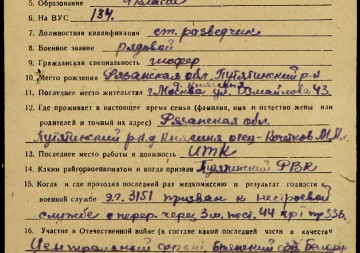 5. Образование 4 класса
6. На ВУС 134.
7. Должностная квалификация ст. разведчик
8. Военное звание рядовой
9. Гражданская специальность шофер
10. Место рождения Рязанская обл. Путятинский р-н
11. Последнее место жительства г. Москва ул. Измайлова 43.
12. Где проживает в настоящее время семья (фамилия, имя и отчество жены или
родителей и точный их адрес) Рязанская обл.
Путятинский р-н д. отец - Кочетков М.
13. Последнее место работы и должность ИТК
14. Каким райгорвоенкоматом и когда призван Путятинский РВК
15. Когда и где проходил последний раз медкомиссию и результат годности к
военной службе э.г. 3151 признан к нестроевой
службе с перер. через 3 м. 44 пр. 336.
16. Участие в Отечественной войне (в составе какой последней части в качестве
Центральный фронт, Брянский